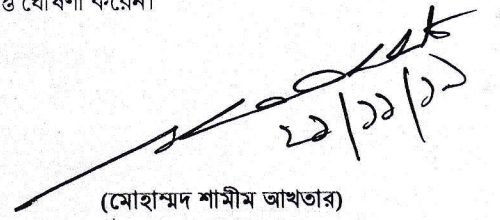 ও ঘোষণা করেন।
২১/১১/১৯
(মোহাম্মদ শামীম আখতার)